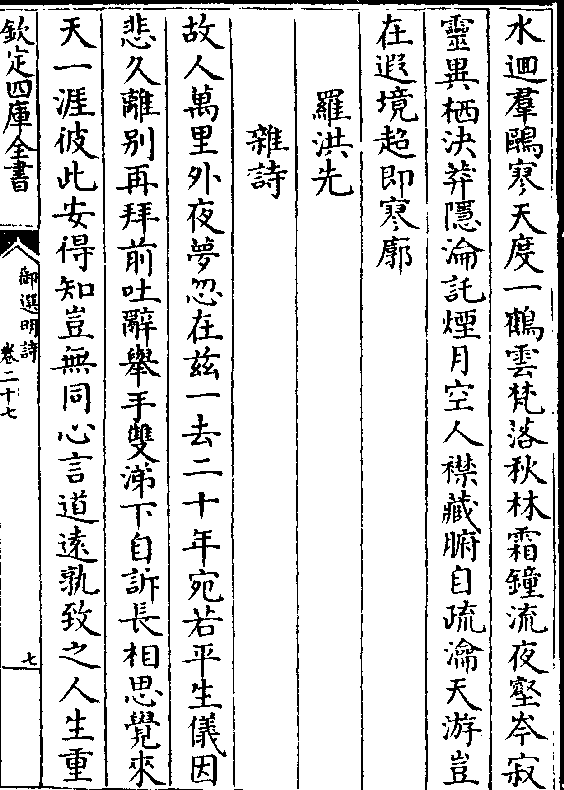 水迴羣鷗寒天度一鶴雲梵落秋林霜鐘流夜壑岑寂
靈異栖泱莽隱淪託煙月空人襟藏腑自疏瀹天游豈
在遐境超即寥廓
羅洪先
雜詩
故人萬里外夜夢忽在兹一去二十年宛若平生儀因
悲久離别再拜前吐辭舉手雙涕下自訴長相思覺來
天一涯彼此安得知豈無同心言道遠孰致之人生重
欽定四庫全書
御選明詩
卷二十七
七